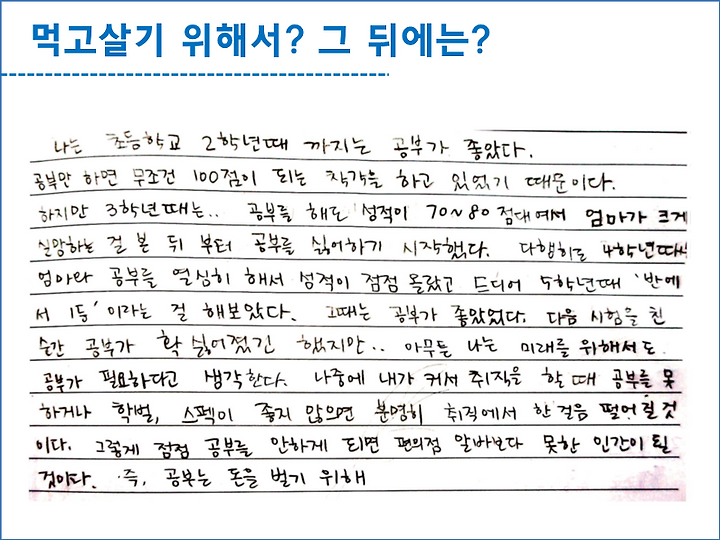 먹고살기 위해서? 그 뒤에는?
나는 초등학교 2학년때 까지는 공부가 좋았다.
공부만 하면 무조건 100점이 되는 착각을 하고 있었기 때문이다.
하지만 3학년때는.. 공부를 해도 성적이 70~80점대여서 엄마가 크게
실망하는 걸 본 뒤 부터 공부를 싫어하기 시작했다. 다행히도 4학년때
엄마와 공부를 열심히 해서 성적이 점점 올랐고 드디어 5학년때 '반에
서 1등' 이라는 걸 해보았다. 그때는 공부가 좋았었다. 다음 시험을 친
순간 공부가 확 싫어졌긴 했지만.. 아무튼 나는 미래를 위해서도
공부가 필요하다고 생각한다. 나중에 내가 커서 취직을 할 때 공부를 못
하거나 학벌, 스펙이 좋지 않으면 분명히 취직에서 한 걸음 떨어질 것
이다. 그렇게 점점 공부를 안하게 되면 편의점 알바보다 못한 인간이 될
것이다. 즉, 공부는 돈을 벌기 위해